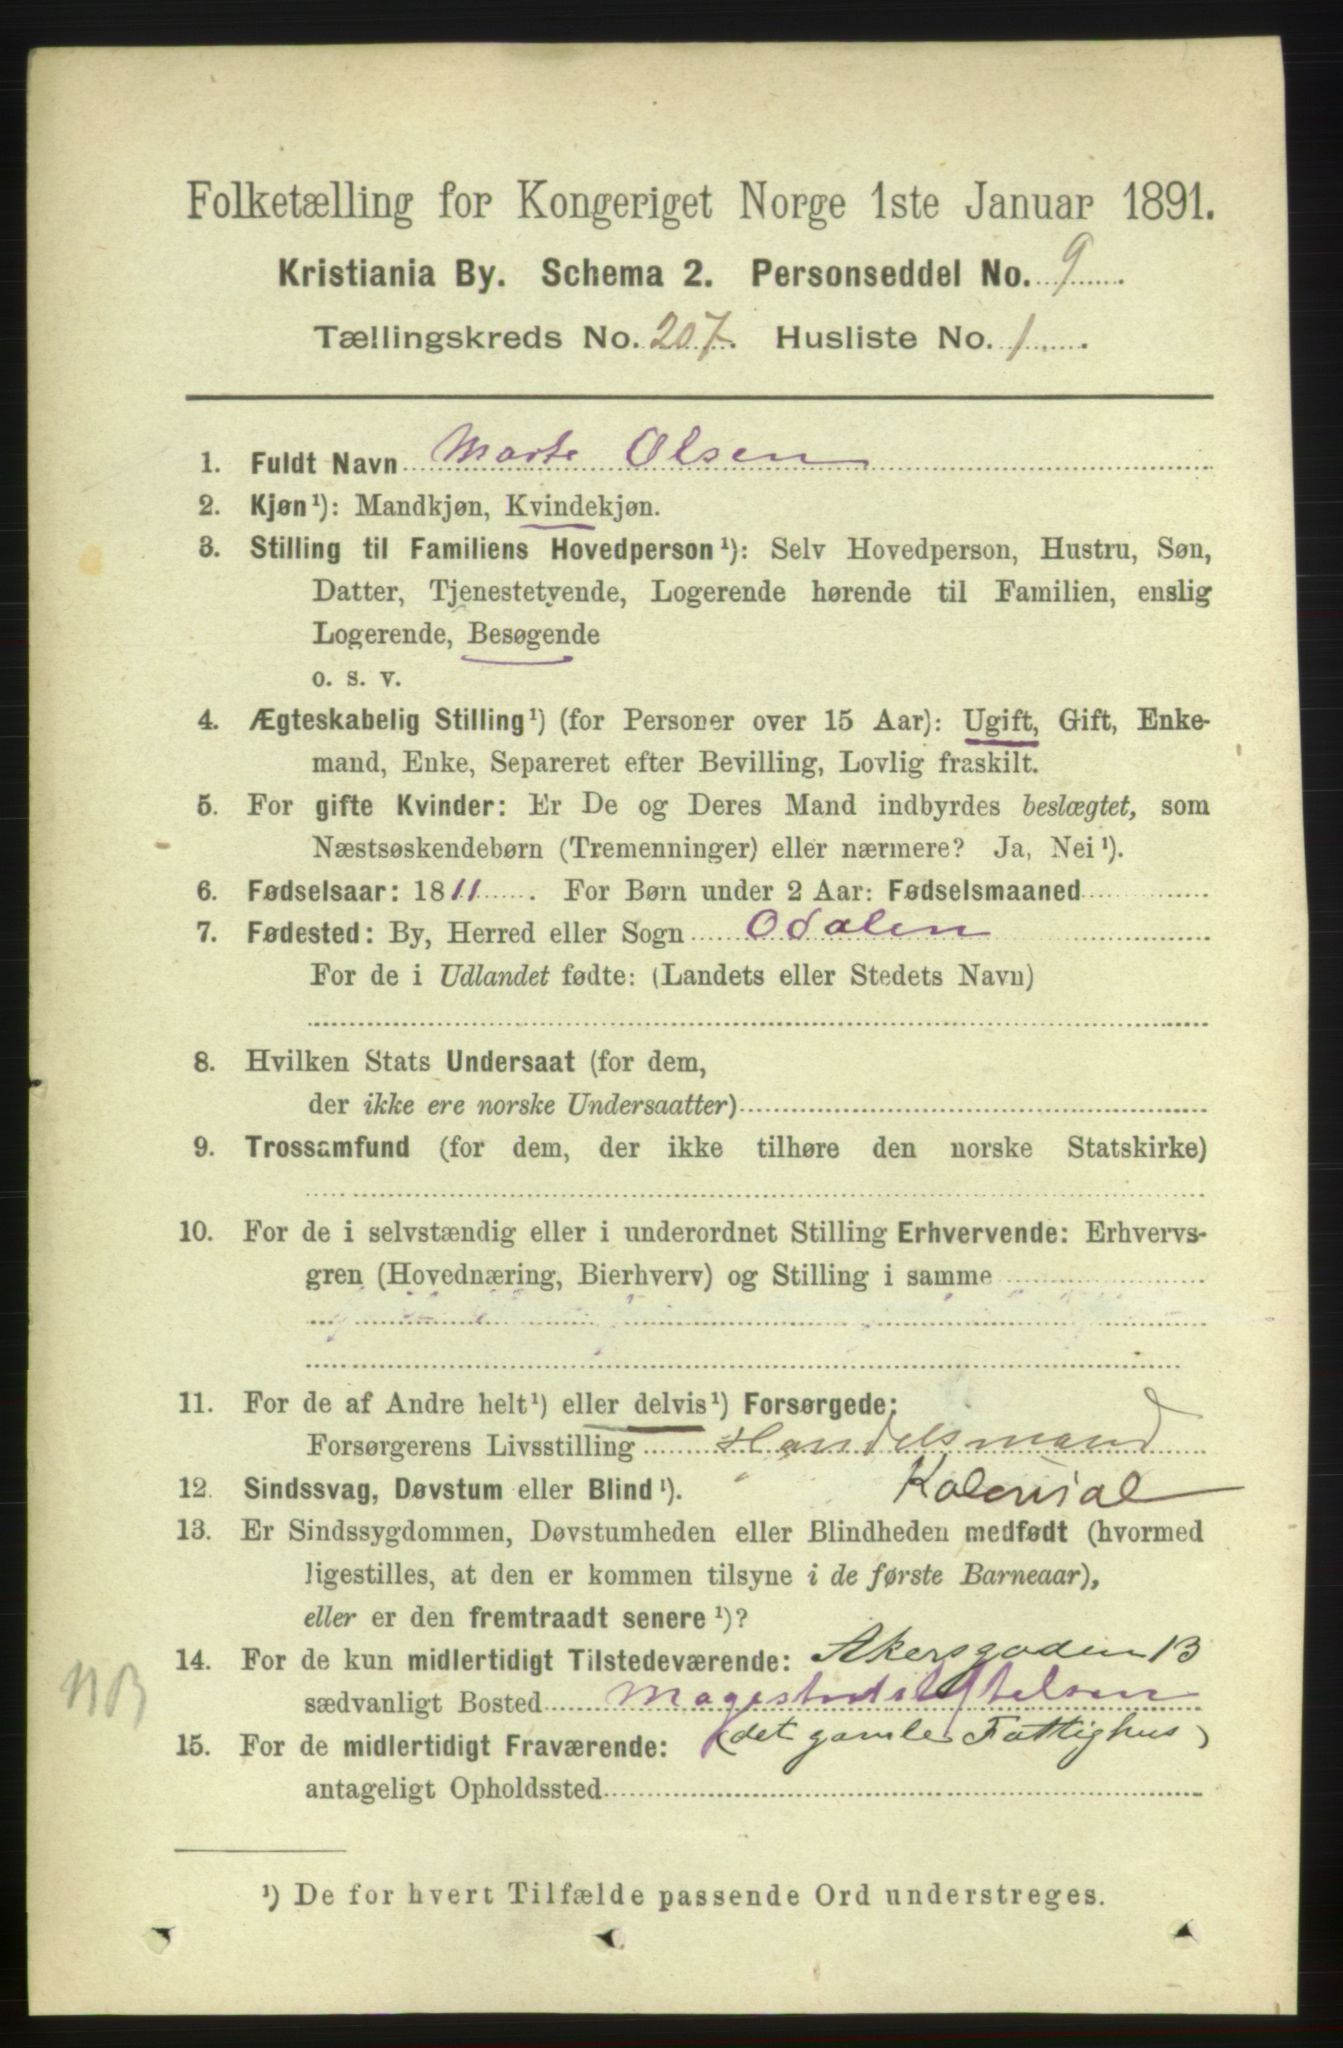 Folketælling for Kongeriget Norge 1ste Januar 1891.
Kristiania By. Schema 2. Personseddel No. 9
Tællingskreds No. 207. Husliste No. 1
1. Fuldt Navn Marte Olsen
2. Kjøn¹): Mandkjøn, Kvindekjøn.
3. Stilling til Familiens Hovedperson¹): Selv Hovedperson, Hustru, Søn,
Datter, Tjenestetyende, Logerende hørende til Familien, enslig
Logerende, Besøgende
o. s. v.
4. Ægteskabelig Stilling¹) (for Personer over 15 Aar): Ugift, Gift, Enke-
mand, Enke, Separeret efter Bevilling, Lovlig fraskilt.
5. For gifte Kvinder: Er De og Deres Mand indbyrdes beslægtet, som
Næstsøskendebørn (Tremenninger) eller nærmere? Ja, Nei¹).
6. Fødselsaar: 1811. For Børn under 2 Aar: Fødselsmaaned
7. Fødested: By, Herred eller Sogn Odalen
For de i Udlandet fødte: (Landets eller Stedets Navn)
8. Hvilken Stats Undersaat (for dem,
der ikke ere norske Undersaatter)
9. Trossamfund (for dem, der ikke tilhøre den norske Statskirke)
10. For de i selvstændig eller i underordnet Stilling Erhvervende: Erhvervs-
gren (Hovednæring, Bierhverv) og Stilling i samme
11. For de af Andre helt¹) eller delvis¹) Forsørgede:
Forsørgerens Livsstilling Handelsmand
12. Sindssvag, Døvstum eller Blind¹). Kolonial
13. Er Sindssygdommen, Døvstumheden eller Blindheden medfødt (hvormed
ligestilles, at den er kommen tilsyne i de første Barneaar),
eller er den fremtraadt senere¹)?
14. For de kun midlertidigt Tilstedeværende: Akersgaden 13
sædvanligt Bosted
(det gamle Fattighus)
15. For de midlertidigt Fraværende:
antageligt Opholdssted
NB
¹) De for hvert Tilfælde passende Ord understreges.